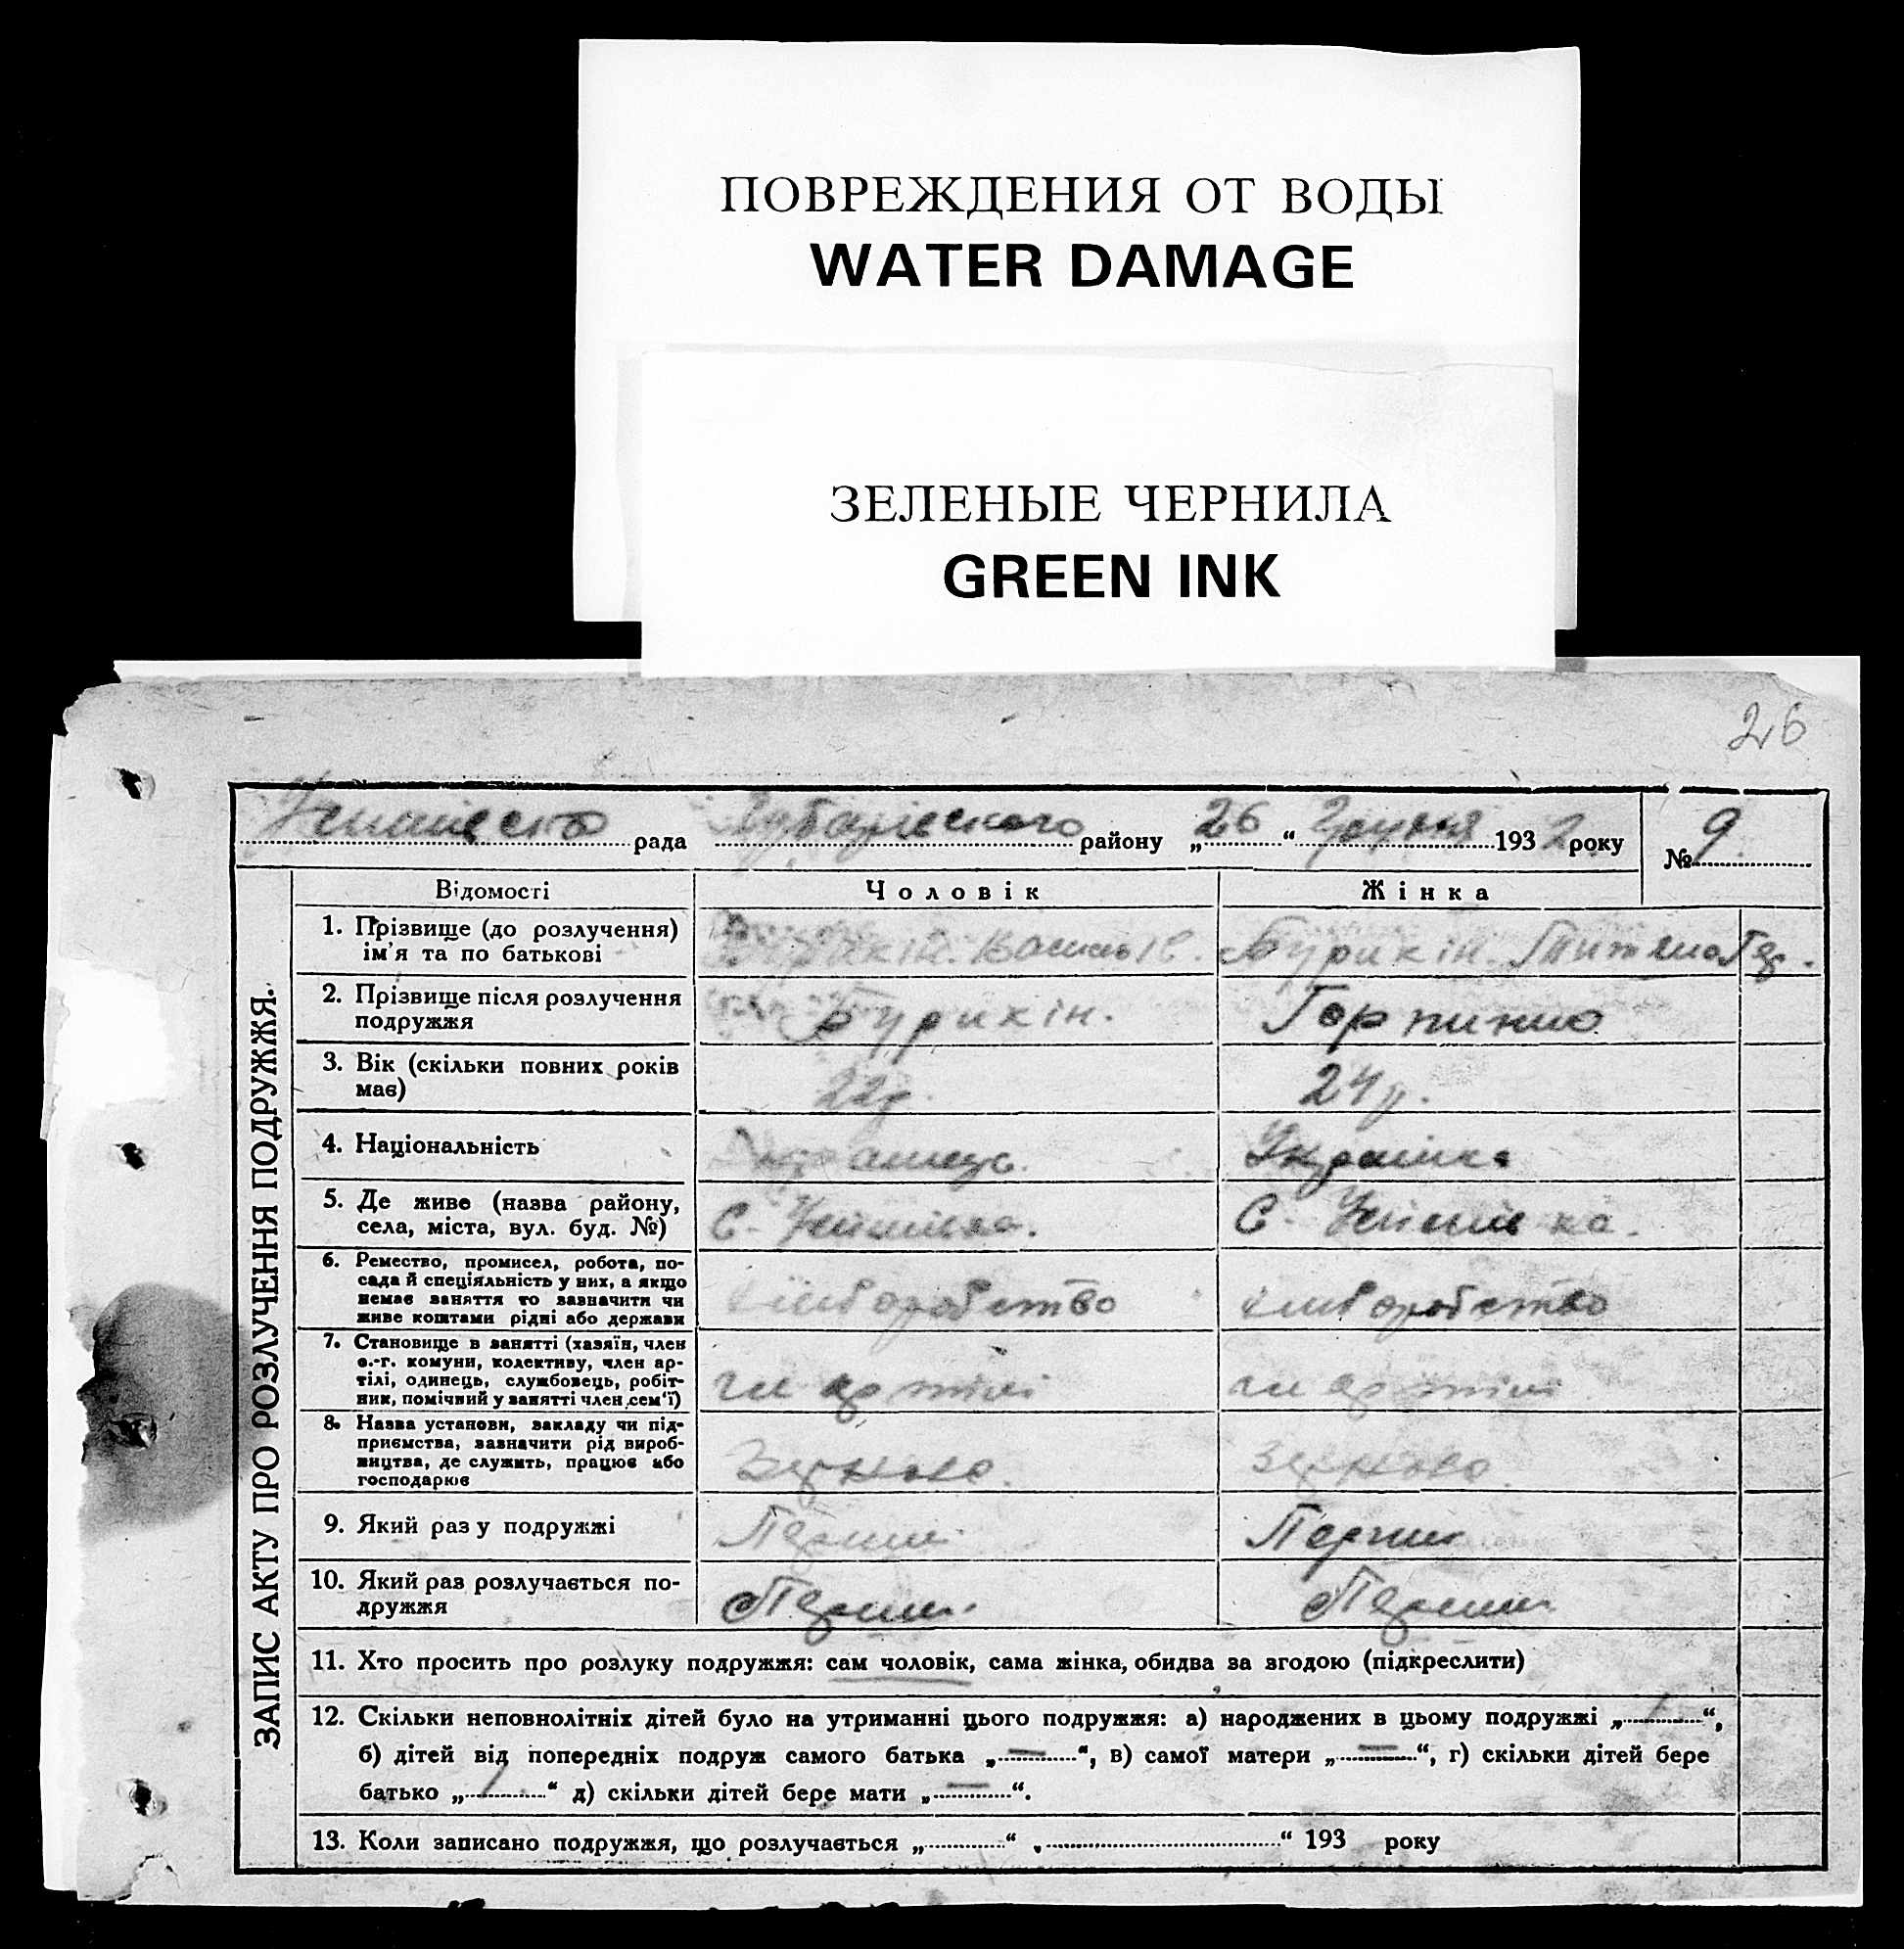 ПОВРЕЖДЕНИЯ ОТ ВОДЫ
WATER DAMAGE
ЗЕЛЕНЫЕ ЧЕРНИЛА
GREEN INK
26
рада району „26“ Грудня 1932 року № 9
Відомості Чоловік Жінка
ЗАПИС АКТУ ПРО РОЗЛУЧЕННЯ ПОДРУЖЖЯ.
1. Прізвище (до розлучення)
ім'я та по батькові
Бурикін.
2. Прізвище після розлучення
подружжя
Бурикін.
3. Вік (скільки повних років
має)
22р. 24р.
4. Національність
Українка
5. Де живе (назва району,
села, міста, вул. буд. №)
с. с.
6. Ремество, промисел, робота, по-
сада й спеціяльність у них, а якщо
немає заняття то зазначити чи
живе коштами рідні або держави
хліборобство хліборобство
7. Становище в занятті (хазяїн, член
с.-г. комуни, колективу, член ар-
тілі, одинець, службовець, робіт-
ник, помічний у занятті член сем'ї)
чл артілі чл артілі
8. Назва установи, закладу чи під-
приємства, зазначити рід вироб-
ництва, де служить, працює або
господарює
зернове. зернове.
9. Який раз у подружжі
Перший Перший
10. Який раз розлучається по-
дружжя
Перший. Перший
11. Хто просить про розлуку подружжя: сам чоловік, сама жінка, обидва за згодою (підкреслити)
12. Скільки неповнолітніх дітей було на утриманні цього подружжя: а) народжених в цьому подружжі „1“,
б) дітей від попередніх подруж самого батька „—“, в) самої матери „—“, г) скільки дітей бере
батько „1“ д) скільки дітей бере мати „—“.
13. Коли записано подружжя, що розлучається „ “ „ “ 193 року